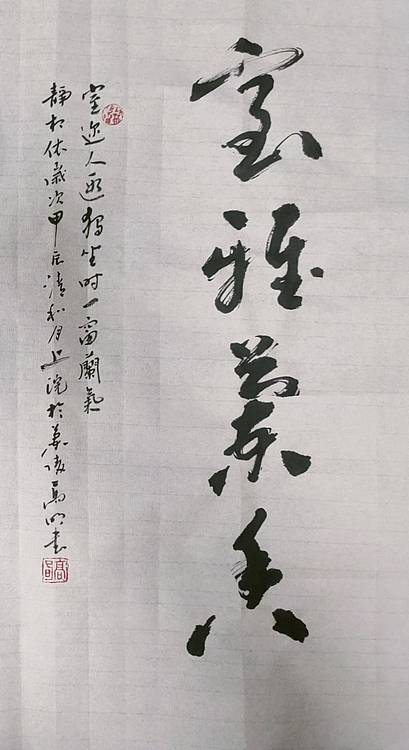 室雅蘭香
室迩人遐獨坐时一窗蘭氣
靜相依歲次甲辰清和月上浣於陵高明書